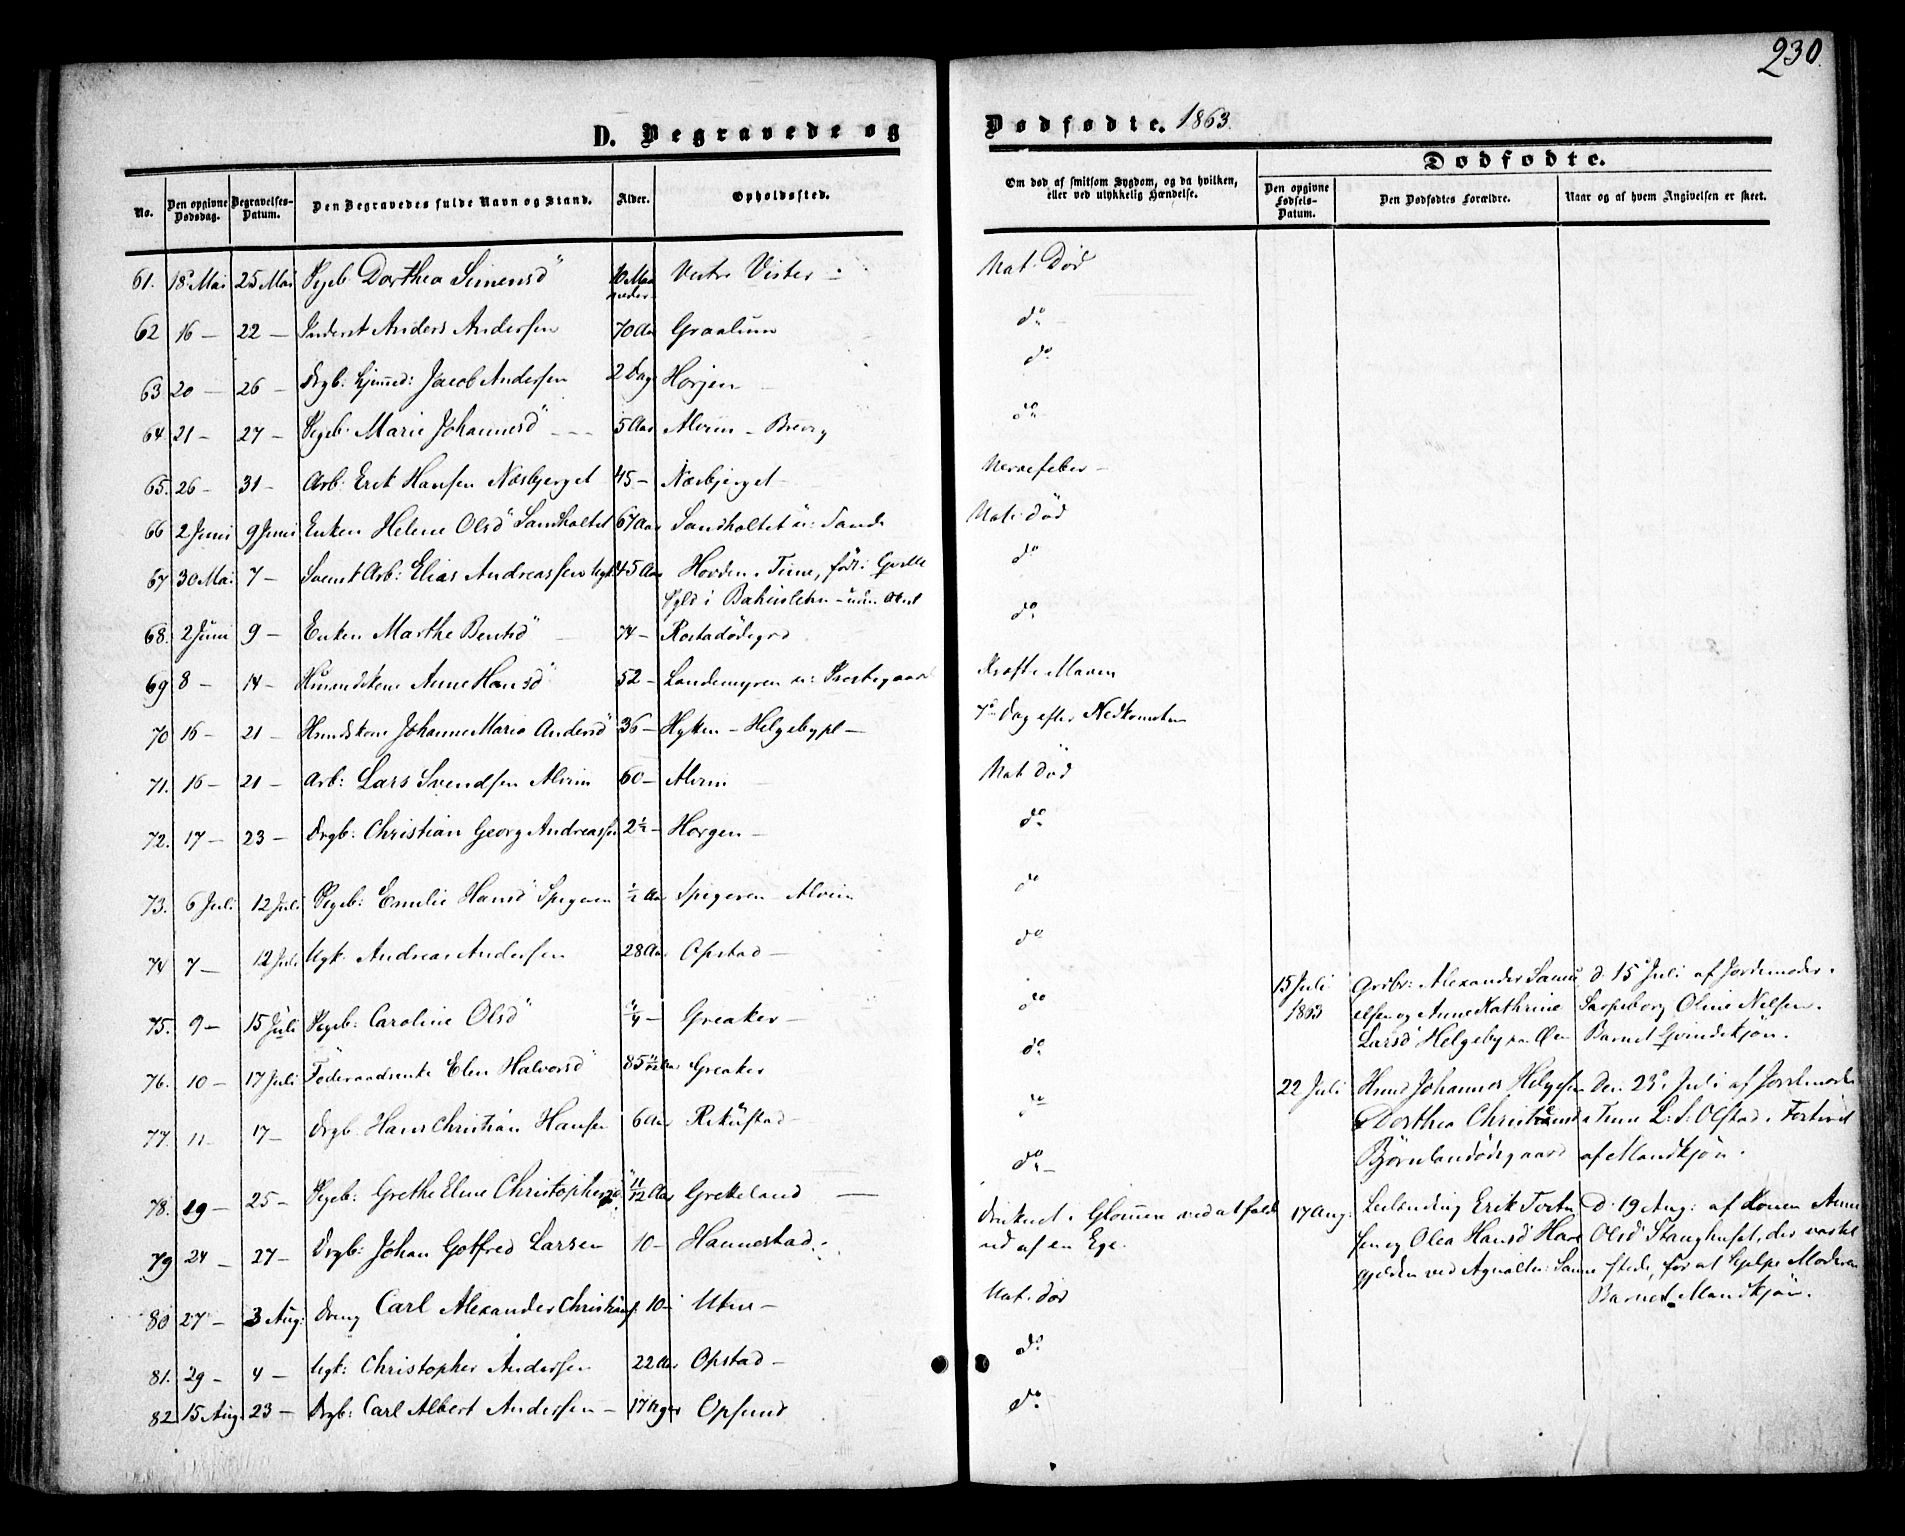 230.
D. Begravede og
Dødfødte. 1863.
Dødfødte.
No.
Den opgivne Dødsdag.
Begravelses-Datum.
Den Begravedes fulde Navn og Stand.
Alder.
Opholdssted.
Om død af smitsom Sygdom, og da hvilken, eller ved ulykkelig Hændelse.
Den opgivne Fødsels-Datum.
Den Dødfødtes Forældre.
Naar og af hvem Angivelsen er skeet.
61. 18 Mai 25 Mai Pgeb. Dorthea Simensd 10 Maaneder Vestre Vister - Nat. Død
62 16 - 22 - Inderst Anders Andersen 70 Aar Graalum do
63 20 - 26 - Drgb: hjemmed: Jacob Andersen 2 Dage Horjen - do
64 21 - 27 - Pgeb. Marie Johannesd - - - 5 Aar Alvim - Brevig do
65. 26 - 31 - Arb: Erik Hansen Næsbjerget 45 - Næsbjerget - Nervefeber -
66 2 Juni 9 Juni Enken Helene Olsd Sandholtet 67 Aar Sandholtet u: Sande Nat: død
67 30 Mai 7 - Svensk Arb: Elias Andreassen Ugk 45 Aar Hovden i Tune, født i Qville do
i Bahuslehn
68. 2 Juni 9 - Enken Marthe Bentsd 74 - Rostadødegrd do
69 8 - 14 - Husmdskone Anne Hansd 52 - Landemyren u: Kræft i Maven
70 16 - 21 - Hsmdskone Johanne Marie Andersd 36 - Hytten - Helgebypl - 7de Dag efter Nedkomsten
71. 16 - 21 - Arb: Lars Svendsen Alvim 60 - Alvim Nat. død
72. 17 - 23 - Drgb: Christian Georg Andreassen 2½ - Horgen - do
73. 6 Juli 12 Juli Pgeb: Emilie Hansd Spigeren ½ Aar Spigeren - Alvim do
74 7 - 12 Juli Ugk. Andreas Andersen 28 Aar Opstad - do
75. 9 - 15 Juli Pgeb: Caroline Olsd ¼ - Greaker - do
76. 10 - 17 Juli Føderaadsenke Elen Halvorsd 85 Greaker - do
77. 11 - 17 - Drgb. Hans Christian Hansen 6 Aar Rikustad - do
78. 19 - 25 - Pgeb: Grethe Eline Christophersd 11/12 Aar Gretteland - do
79 24 - 27 - Drgb: Johan Gotfred Larsen 10 - Hannestad - Druknet i Glommen ved at falde
ud af en Ege.
80 27 - 3 Aug: Dreng Carl Alexander Christians. 10 - Utne - Nat. død
81. 29 - 4 - Ugk: Christopher Andersen 22 Aar Opstad - do
82 15 Aug 23 - Drgb: Carl Albert Andersen - 17 Uger Opsund do
15 Juli 1863 Alexander Samu
elsen og Anne Kathrine
Larsd Helgeby
d. 15 Juli af Jordemoder i
Sarpsborg Oline Nelsen.
Barnet Qvindekjøn.
22 Juli Hsmd Johannes Helgesen
Dorthea Christiansd
Bjørnlandødegaard
den 23 Juli af Jordemoder
i Tune L. S. Olstad i Fortvedt
af Mandkjøn.
17 Aug. Leilænding Erik Torten
sen og Olea Hansd
gjelden ved Agnalt
D. 19 Aug: af Konen Anne
Olsd Stanghuset, der var tilstede, for at hjelpe Moderen
Barnet Mandkjøn.